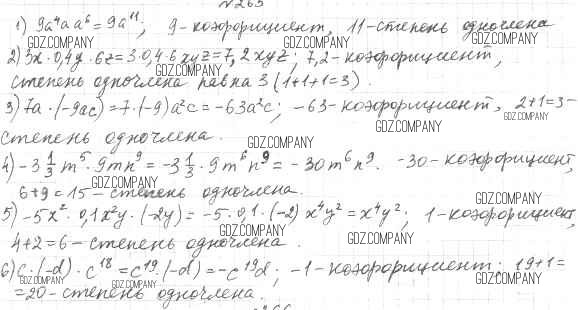 № 265
1) 9a⁴a a⁶ = 9a¹¹; 9-коэффициент, 11-степень одночлена
GDZ.COMPANY GDZ.COMPANY
2) 3x · 0,4y · 6z = 3·0,4·6xyz = 7,2xyz; 7,2-коэффициент,
GDZ.COMPANY
степень одночлена равна 3 (1+1+1=3).
3) 7a · (-9ac) = 7·(-9)a²c = -63a²c; -63-коэффициент, 2+1=3-
GDZ.COMPANY GDZ.COMPANY
степень одночлена.
GDZ.COMPANY
4) -3 1/3 m⁵ · 9mn⁹ = -3 1/3 · 9m⁶n⁹ = -30m⁶n⁹. -30-коэффициент,
GDZ.COMPANY
6+9=15-степень одночлена.
GDZ.COMPANY
5) -5x² · 0,1x²y · (-2y) = -5·0,1·(-2)x⁴y² = x⁴y²; 1-коэффициент,
GDZ.COMPANY
4+2=6-степень одночлена.
GDZ.COMPANY GDZ.COMPANY
6) c·(-d)·c¹⁸ = c¹⁹·(-d) = -c¹⁹d; -1-коэффициент; 19+1=
GDZ.COMPANY GDZ.COMPANY GDZ.COMPANY
=20-степень одночлена.